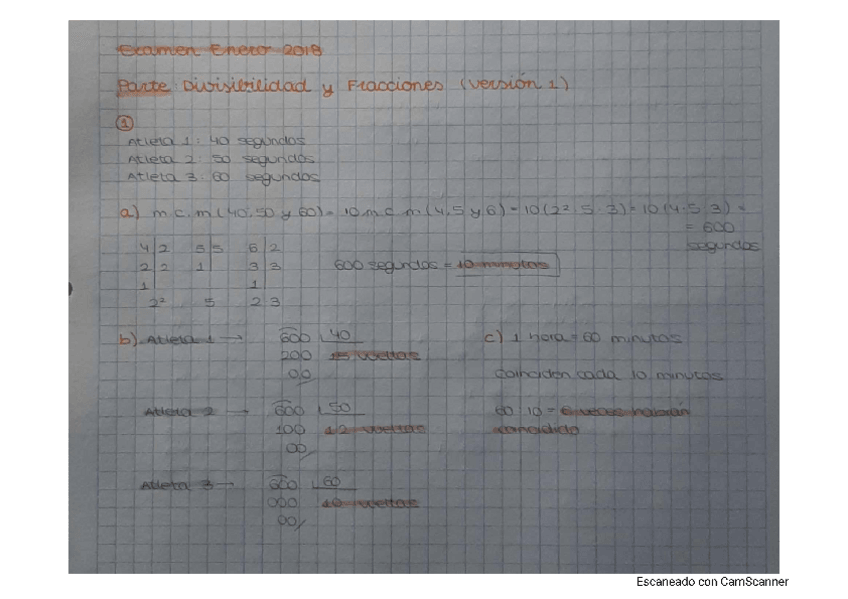 Examen Enero 2018
Parte Divisibilidad y Fracciones (versión 1)
1
Atleta 1: 40 segundos
Atleta 2: 50 segundos
Atleta 3: 60 segundos
a) m.c.m (40, 50 y 60) = 10 m.c.m (4, 5 y 6) = 10 (2² · 5 · 3) = 10 (4 · 5 · 3) =
= 600
segundos
4 2 5 5 6 2
2 2 1 3 3
1 1
2² 5 2 3
600 segundos = 10 minutos
b) Atleta 1 → 600 40
200 15 vueltas
00
Atleta 2 → 600 50
100 12 vueltas
00
Atleta 3 → 600 60
000 10 vueltas
00
c) 1 hora = 60 minutos
Coinciden cada 10 minutos
60 : 10 = 6 veces habrán
coincidido
Escaneado con CamScanner